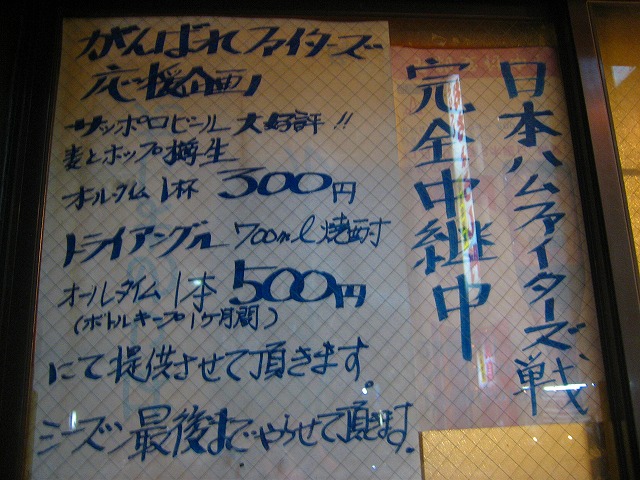 日本ハムファイターズ戦
完全中継中
がんばれファイターズ
応援企画!
サッポロビール大好評!!
麦とホップ樽生
オールタイム1杯 300円
トライアングル 700ml焼酎
オールタイム1本 500円
(ボトルキープ1ヶ月間)
にて提供させて頂きます。
シーズン最後までやらせて頂きます。